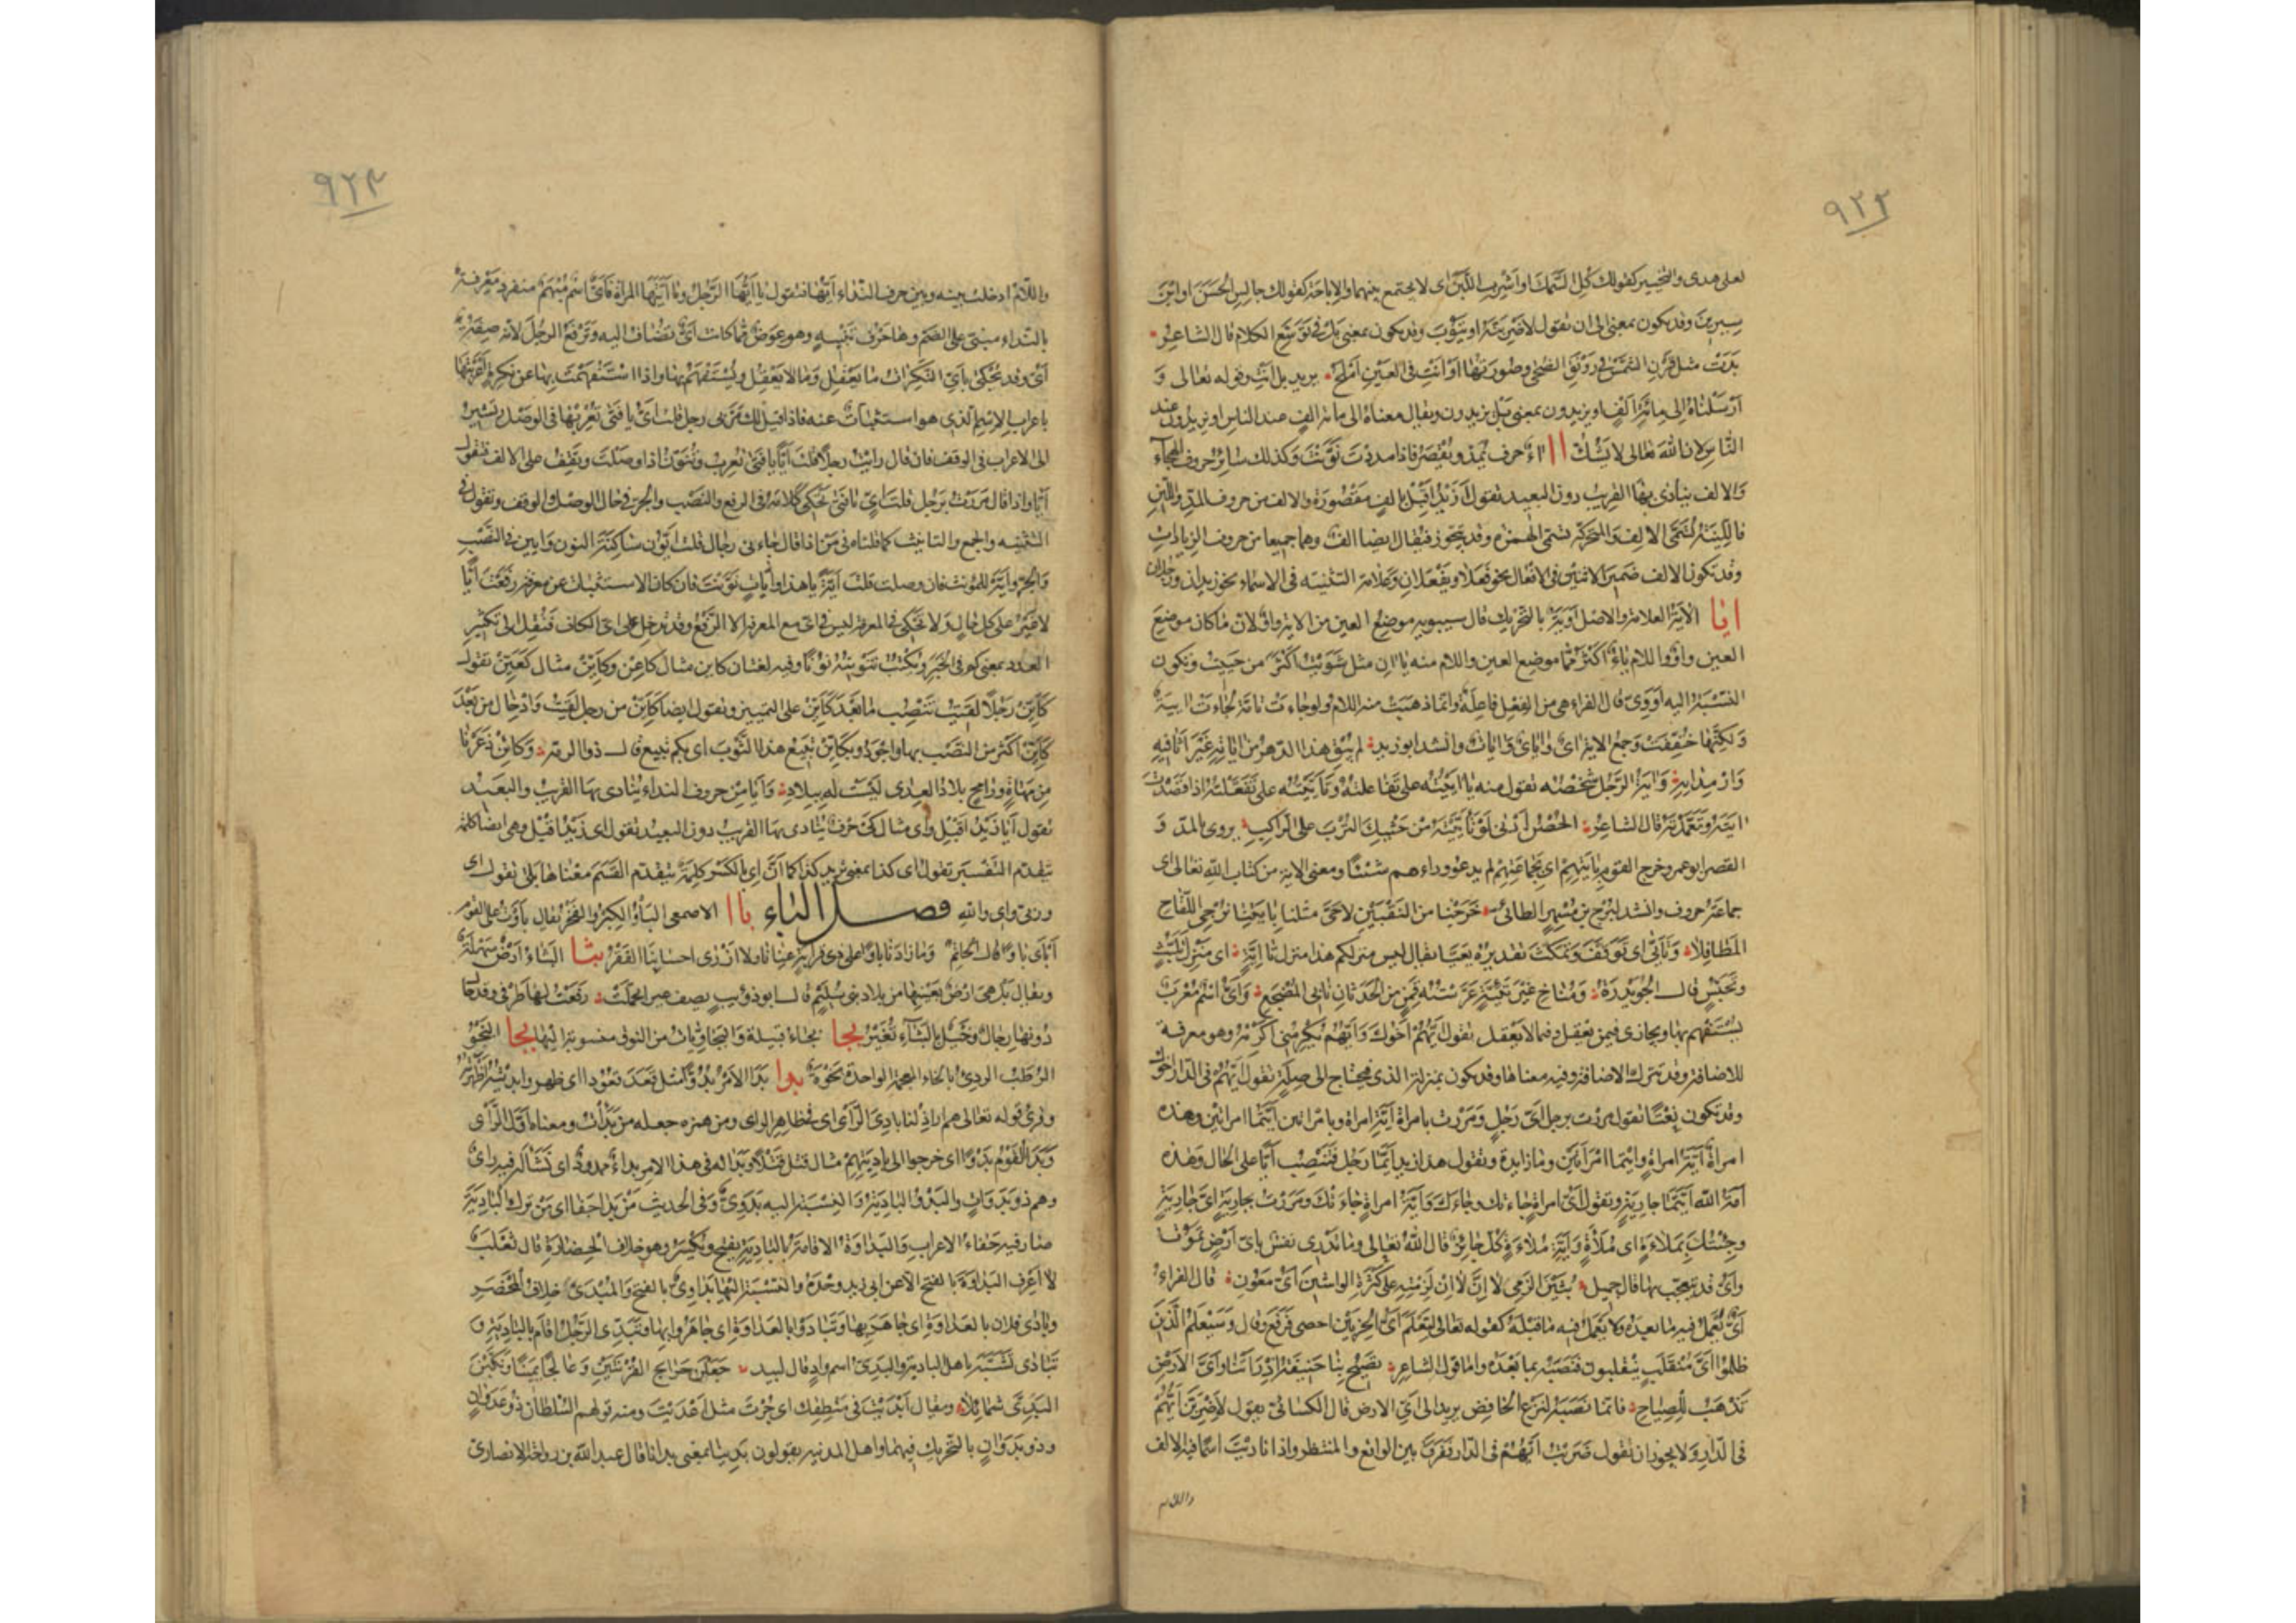 ٩٢٢
لعلى هدى والتخيير كقولك كُلِ السَّمَكَ او اشْرَبِ اللَّبَنَ اى لا تجتمع بينهما والاباحة كقولك جالِسِ الحَسَنَ او ابْنَ
سِيرِينَ وقد يكون بمعنى الى ان تقول لاَضْرِبَنَّهُ او يَتُوبَ وقد يكون بمعنى بَلْ فى تَوَسُّعِ الكلام قال الشاعر
بَدَتْ مثل قَرْنِ الشَّمْسِ فى رَوْنَقِ الضُّحٰى وصُورَتِهَا اَوْ اَنْتِ فى العَيْنِ اَمْلَحُ يريد بل انتِ وقوله تعالى وَ
اَرْسَلْنَاهُ اِلى مِائَةِ اَلْفٍ او يزيدون بمعنى بَلْ يزيدون ويقال معناهُ الى مائة الفٍ عند الناس او يزيدون عند
النَّاسِ لان اللّٰهَ تعالى لا يَشُكُّ ا ا اءٌ حرف يُمَدُّ ويُقْصَرُ فاذا مددتَ نَوَّنْتَ وكذلك سائر حروف الهجآء
وَالالف يُنادَى بها القريبُ دون البعيد تقول اَزَيْدُ اَقْبِلْ بالفٍ مَقْصُورَةٍ والالف من حروف المدّ واللّين
فاللَّيِّنَةُ تُسَمَّى الالِفَ وَالمتحركة تسمّى الهمزة وقد يتجوّز فيقال ايضا الفٌ وهما جميعا من حروف الزيادات
وقد تكون الالف ضميرَ الاثنين فى الافعال نحو فَعَلَا ويَفْعَلانِ وعلامة التثنيه فى الاسماء نحو زيدان ورجلان
ايا الاٰيَةُ العلامة والاصل اَوَيَةٌ بالتحريك قال سيبويه موضع العين من الاٰية واوٌ لانّ ما كان موضعَ
العين واوٌ واللام ياءٌ اكثر ممّا موضع العين واللام منه يا اٰنِ مثل شَوَيْتُ اكثرُ من حَيِيتُ وتكون
النسْبَةُ اليه اَوَوِىّ قال الفراء هى من الفِعْلِ فاعِلَةٌ وانّما ذهبَتْ منه اللام ولو جاءت تامّة لجاءت اٰيِيَةٌ
وَلكنّها خُفِّفَتْ وجمع الاية اٰىٌ واٰيَاىٌ وَاٰيَاتٌ وانشد ابو زيد لم يُبْقِ هذا الدهرُ من اٰيَائِهِ غَيْرَ اَثَافِيهِ
وَاَرْمِدَائِهِ وَاٰيَةُ الرَّجُلِ شَخْصُهُ تقول منه تَاٰيَيْتُهُ على تَفَاعَلْتُهُ وتَاَيَّيْتُهُ على تَفَعَّلْتُهُ اذا قصَدْتَ
اٰيَتَهُ وتَعَمَّدْتَهُ قال الشاعر الحُصْنُ اَدْنٰى لَوْ تَاَيَّيْتِهِ مِنْ حَثْيِكِ التُّرْبَ على الراكِبِ يروى بالمدّ وَ
القصر ابو عمرو خرج القوم بِاٰيَتِهِمْ اى بجماعتهم لم يدعوا وراءهم شَيْئًا ومعنى الاية من كتاب اللّٰه تعالى اى
جماعة حروف وانشد لبُرْجِ بنِ مُسْهِرٍ الطائى خَرَجْنَا من النَّقْبَيْنِ لاحَىَّ مثلنا بِاٰيَتِنَا نُزْجِى اللِّقَاحَ
المَطَافِلَا وتَاَيَّى اى تَوَقَّفَ وتمكّثَ تقديره تَعَيَّا يقال ليس منزلكم هذا منزلَ تَاَيَّةٍ اى مَنْزِلَ تَلَبُّثٍ
وتَحَبُّسٍ قال الحُوَيْدِرَةُ ومُنَاخِ غَيْرِ تَئِيَّةٍ عَرَّسْتُهُ قَمِنٍ مِنَ الحَدَثَانِ نابِى المَضْجَعِ وَاَىٌّ اسْمٌ مُعْرَبٌ
يُسْتَفْهَمُ بها ويجازى فيمن يعقل وفيما لا يعقل تقول اَيُّهُمْ اَخُوكَ وَاَيُّهُمْ يُكْرِمْنِى اُكْرِمْهُ وهو معرفة
للاضافة وقد يترك الاضافة وفيه معناها وقد يكون بمنزلة الذى فيحتاج الى صِلَةٍ تقول اَيُّهُمْ فى الدار اخوك
وقد تكون نَعْتًا تقول مررت برجلٍ اَىِّ رَجُلٍ وَمَرَرْتُ بامراةٍ اَيَّةِ امراةٍ وبامراتين اَيَّتِمَا امراتين وهذه
امراةٌ اَيَّةُ امراةٍ وايّتما امْرَاَتَيْنِ وما زايدة وتقول هذا زيد اَيَّمَا رَجُلٍ فتنصِبُ اَيًّا على الحال وهذه
اَمَةُ اللّٰه اَيَّتَمَا جاريةٍ وتقول اَىُّ امراةٍ جاءتك وجاءك واَيَّةُ امراةٍ جاءتك ومررت بجاريةٍ اَىِّ جاريةٍ
وجئتك بمُلاءَةٍ اىِّ مُلاَةٍ وَاَيَّةِ مُلاءَةٍ كلٌّ جائز قال اللّٰه تعالى وما تدرى نفسٌ باىّ اَرْضٍ تَمُوتُ
وَاىٌّ قد يتعجب بها قال جميل بُثَيْنَ الْزَمِى لا اِنَّ لا اِنْ لَزِمْتِهِ على كَثْرَةِ الواشِينَ اَىُّ مَعُونِ قال الفراء
اَىٌّ يَعْمَلُ فيه ما بعده ولا يَعْمَلُ فيه ما قبلَه كقوله تعالى لِنَعْلَمَ اَىُّ الحِزْبَيْنِ احصى فَرَفَعَ وقال وسَيَعْلَمُ الَّذِينَ
ظلموا اَىَّ مُنْقَلَبٍ ينقلبون فنصَبَه بما بَعْدَهُ واما قول الشاعر تَصِيحُ بِنَا حَنِيفَةُ اِذْ رَاَتْنَا وَاَىَّ الاَرْضِ
تَذْهَبُ لِلصِّيَاحِ فانّما نَصَبَه لنزع الخافض يريد الى اَىِّ الارض قال الكسائىّ تقول لاَضْرِبَنَّ اَيُّهُمْ
فى الدّارِ ولا يجوز ان تقول ضَرَبْتُ اَيُّهُمْ فى الدار ففرّق بين الواقع والمنتظر واذا ناديْتَ اسمًا فيه الالف
واللام
٩٢٣
واللّامُ ادخلت بينه وبين حرف النداء اَيُّهَا فتقول يا اَيُّهَا الرَّجُلُ ويا اَيَّتُهَا المراة فاَىٌّ اسمٌ مُبْهَمٌ منفرد مَعْرِفَةٌ
بالنداء مبنىّ على الضمّ وها حَرْفُ تَنْبِيهٍ وهو عِوَضٌ ممّا كانت اَىٌّ تُضَافُ اليه وتَرْفَعُ الرجُلَ لانّه صِفَةُ
اَىٍّ وقد يُحْكَى باَىٍّ النَّكِرَاتُ ما يَعْقِلُ وَمَا لا يَعْقِلُ ويُسْتَفْهَمُ بها واذا اسْتَفْهَمْتَ بها عن نَكِرَةٍ اَعْرَبْتَهَا
باعراب الاسْمِ الّذى هو استثباتٌ عنه فاذا قيل لك مرّ بى رجل قلت اَىٌّ يا فتى تُعْرِبُهَا فى الوصل وتُشِيرُ
الى الاعراب فى الوقف فان قال رايت رجلاً قلت اَيًّا يا فتى تُعْرِبُ وتُنَوِّنُ اذا وصلت وتقف على الالف فتقول
اَيَّا واذا قال مررت برجلٍ قلت اَىٍّ يا فتى تَحْكِى كلامَهُ فى الرفع والنصب والجرّ فى حال الوصل والوقف وتقول فى
التثنيه والجمع والتانيث كما قلناه فى مَنْ اذا قال جاءنى رجال قلت اَيُّونْ ساكنة النون وَاَيِّينْ فى النَّصْبِ
وَالجرّ واَيَّهْ للمونث فان وصلت قلت اَيَّةً يا هذا واَيَّاتٍ نَوَّنْتَ فان كان الاستثبات عن معرفةٍ رَفَعْتَ اَيًّا
لا غَيْرُ على كلّ حالٍ ولا تَحْكِى فى المعرفة ليس فى اىّ مع المعرفة الا الرّفع وقد تدخل على اىّ الكاف فتُنْقَلُ الى تكثير
العدد بمعنى كم فى الخَبَرِ وتُكْتَبُ تنوينُهُ نُونًا وفيه لغتان كاين مثال كاعِنْ وكَاَيِّنْ مثال كَعَيِّنْ تقول
كَاَيِّنْ رَجُلًا لَقِيتَ تَنْصِبُ ما بَعْدَ كَاَيِّنْ على التمييز وتقول ايضا كَاَيِّنْ من رجلٍ لَقِيتُ وَادْخَالُ من بَعْدَ
كَاَيِّنْ اكثر من النصب بها واجودُ وبِكَاَيِّنْ تَبِيعُ هذا الثَّوْبَ اى بكم تبيع قال ذو الرمة وكائِنْ ذَعَرْنَا
مِن مَهَاةٍ ورامِحٍ بلادُ العِدَى لَيْسَتْ له بِبِلادِ وَاَيَا مِنْ حروف النداء يُنَادى بها القريبُ والبَعِيدُ
تقول اَيَا زَيْدُ اَقْبِلْ واَىْ مثال كَىْ حَرْفٌ يُنَادى بها القريب دون البعيد تقول اى زَيْدُ اَقْبِلْ وهى ايضا كلمة
تَتَقَدَّمُ التَّفْسِيرَ تقول اى كذا بمعنى يريد كذا كما اَنَّ اِى بالكسر كلِمَةٌ تتقدّم القَسَمَ مَعْنَاهَا بَلٰى تقول اى
وربّى واى واللّٰهِ فصل الباء باا الاصمعى البَأْوُ الكِبْرُ والفَخْرُ يقال بَاَوْتُ على القوم
اَبْاَى بَاْوًا قال حاتم وما زادنا بَأْوًا على ذى قرابةٍ غِنَانا ولا اَزْرَى باحسابِنَا الفَقْرُ بثا البَثَاءُ اَرْضٌ سَهْلَةٌ
ويقال بَلْ هى ارضٌ بعَيْنِها من بلاد بنى سُلَيْمٍ قال ابو ذويب يصف عِيرًا تحمّلَتْ رَفَعْتُ لها طَرْفى وقد حَالَ
دُونها رِجَالٌ وخَيْلٌ بِالبَثَآءِ تُغِيرُ بجا بُجَاءُ قبيلة وَالبُجَاوِيَّاتُ من النوق منسوبة اليها بخا البَخْوُ
الرُّطَبُ الردِىُّ بالخاء المعجمة الواحدة بَخْوَةٌ بدا بَدَا الاَمْرُ بُدُوًّا مثل قَعَدَ قُعُودا اى ظهر وابديْتُه اَظْهَرْتُهُ
وقرئ قوله تعالى هم اراذلنا بادِىَ الرَّاْىِ اى فى ظاهرِ الراى ومن همزه جعله من بَدَاْتُ ومعناه اَوَّلَ الرَّأْىِ
وَبَدَا القَوْمُ بَدْوًا اى خرجوا الى بادِيَتِهِمْ مثال قتل قَتْلًا وبَدَا له فى هذا الامر بداءٌ ممدودٌ اى نَشَاَ له فيه راىٌ
وهو ذو بَدَوَاتٍ والبَدْوُ البَادِيَةُ وَالنِسْبَةُ اليه بَدَوِىٌّ وَفى الحديث مَنْ بَدَا جَفَا اى مَنْ نزل البَادِيَةَ
صار فيه جَفَاءُ الاعراب وَالبداوةُ الاقامةُ بالبادِيَةِ يفتح ويُكْسَرُ وهو خلاف الحِضارَةِ قال ثَعْلَبٌ
لا اَعْرِفُ البَدَاوَةَ بالفتح الا عن ابى زيد وحْدَهُ والنِسْبَةُ اليها بَدَاوِىٌّ بالفتح وَالمَبْدَى خلافُ المَحْضَرِ
وبَادَى فلان بالعداوةِ اى جاهَرَ بها وتَبَادَوْا بالعداوةِ اى جاهَرُوا بها وتَبَدّى الرَّجُلُ اقام بالبادية وَ
تَبَادَى تَشَبَّهَ باهل البادية والبَدِىُّ اسم وادٍ قال لبيد جَعَلْنَ حَرَاجَ القُرْنَتَيْنِ وعَالِجًا يَمِينًا ونَكَّبْنَ
البَدِىَّ شمائِلًا ويقال اَبْدَيْتَ فى مَنْطِقِكَ اى جُرْتَ مثل اَعْدَيْتَ ومنه قولهم السُّلْطَانُ ذو عَدَوَانٍ
وذو بَدَوَانٍ بالتحريك فيهما واهل المدينه يقولون بَدِينَا بمعنى بدانا قال عبد اللّٰه بن رواحة الانصارى